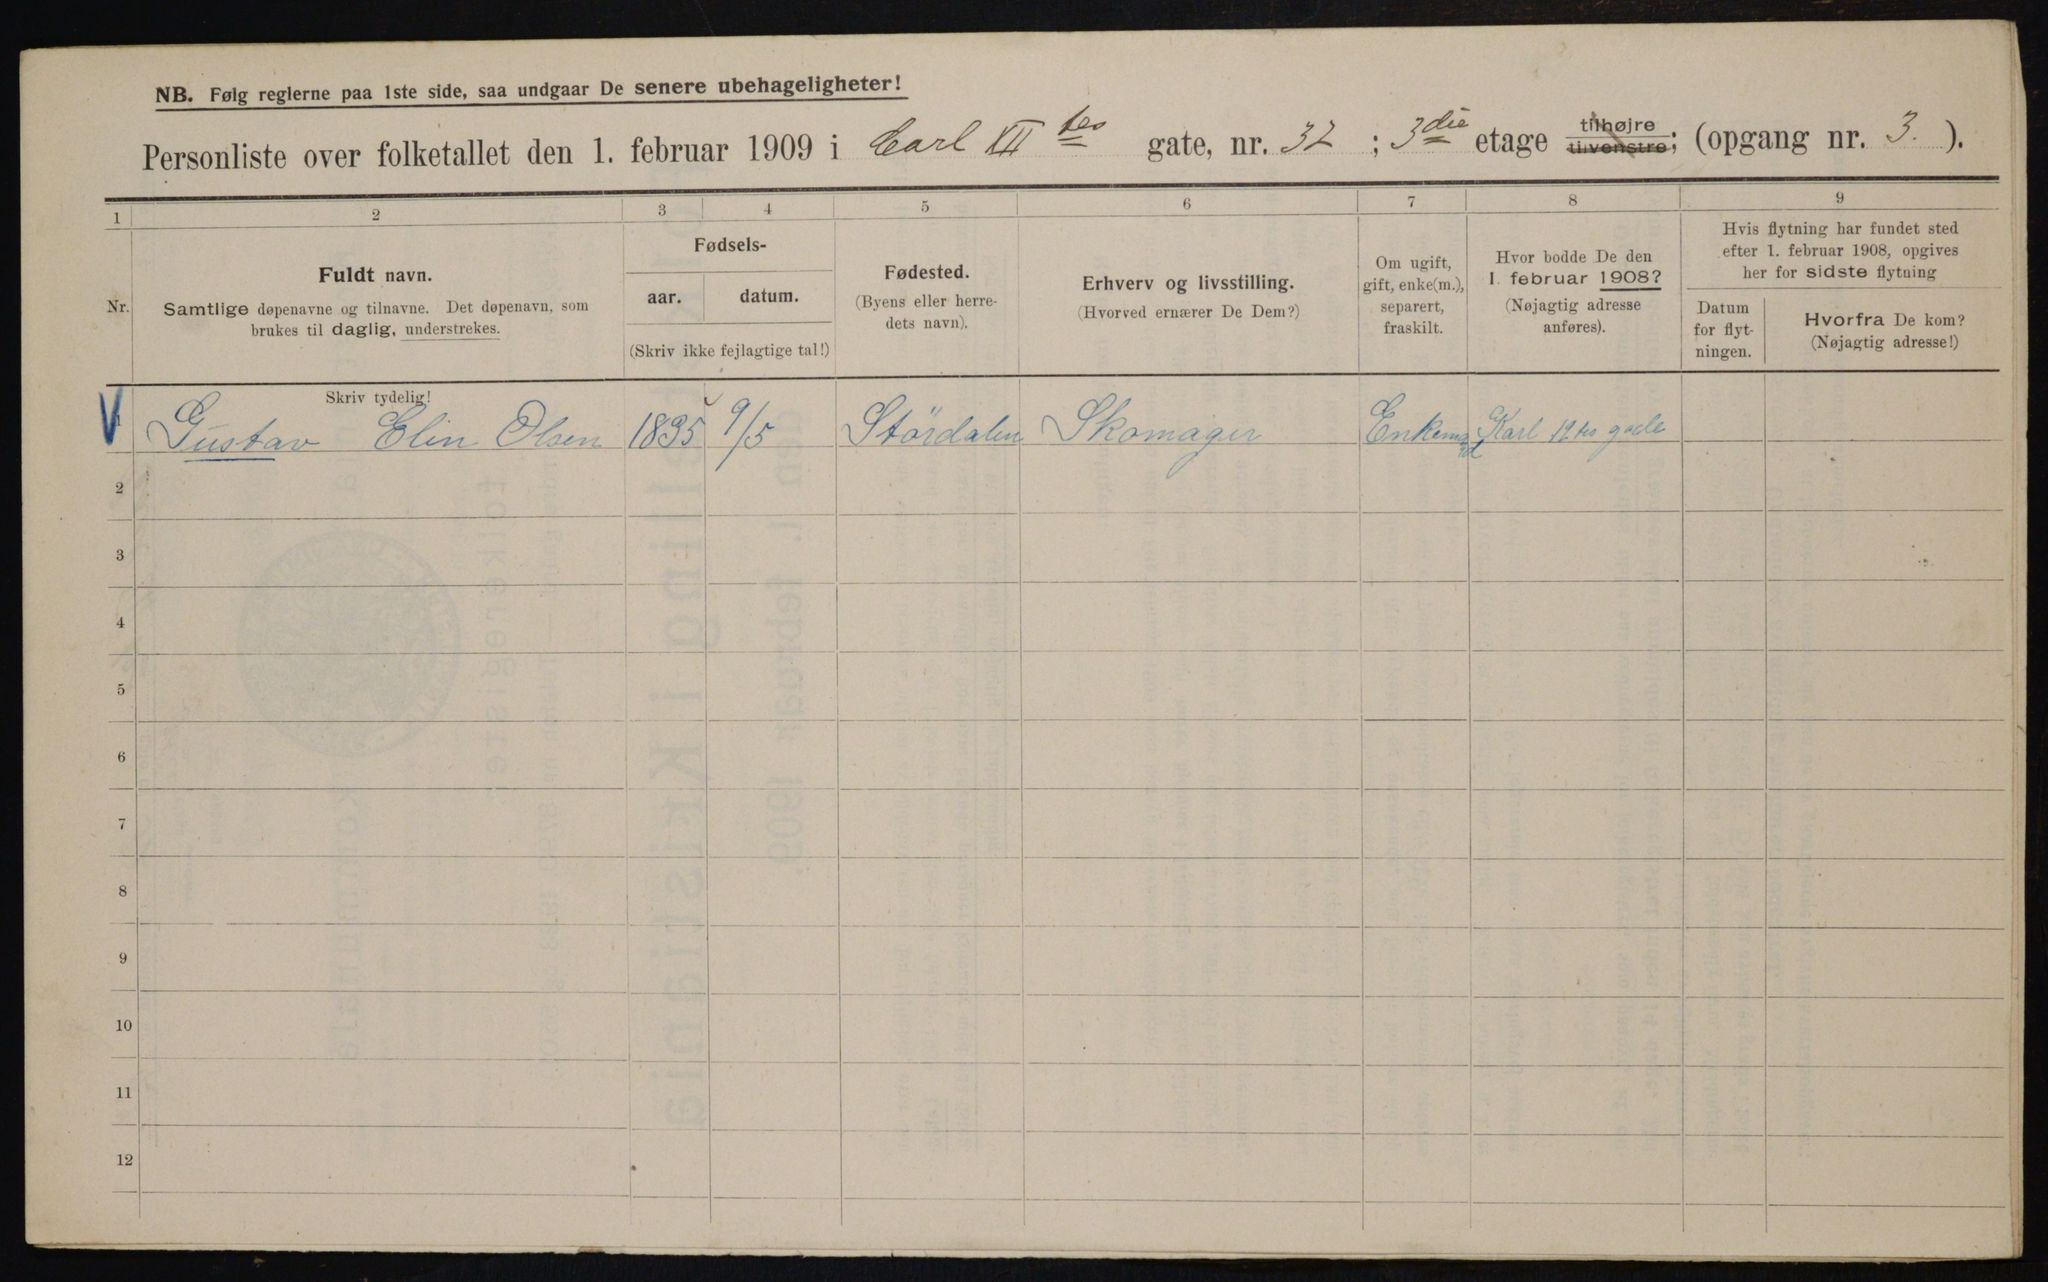 NB. Følg reglerne paa 1ste side, saa undgaar De senere ubehageligheter!
Personliste over folketallet den 1. februar 1909 i Carl XII tes gate, nr. 32 ; 3die etage tilhøjre tilvenstre; (opgang nr. 3. ).
1 2 3 4 5 6 7 8 9
Nr.
Fuldt navn.
Samtlige døpenavne og tilnavne. Det døpenavn, som
brukes til daglig, understrekes.
Fødsels-
aar. datum.
(Skriv ikke fejlagtige tal!)
Fødested.
(Byens eller herre-
dets navn).
Erhverv og livsstilling.
(Hvorved ernærer De Dem?)
Om ugift,
gift, enke(m.),
separert,
fraskilt.
Hvor bodde De den
1. februar 1908?
(Nøjagtig adresse
anføres).
Hvis flytning har fundet sted
efter 1. februar 1908, opgives
her for sidste flytning
Datum
for flyt-
ningen.
Hvorfra De kom?
(Nøjagtig adresse!)
Skriv tydelig!
Gustav Elin Olsen 1835 9/5 Stördalen Skomager Enkemand Karl 12 tes gade
2
3
4
5
6
7
8
9
10
11
12